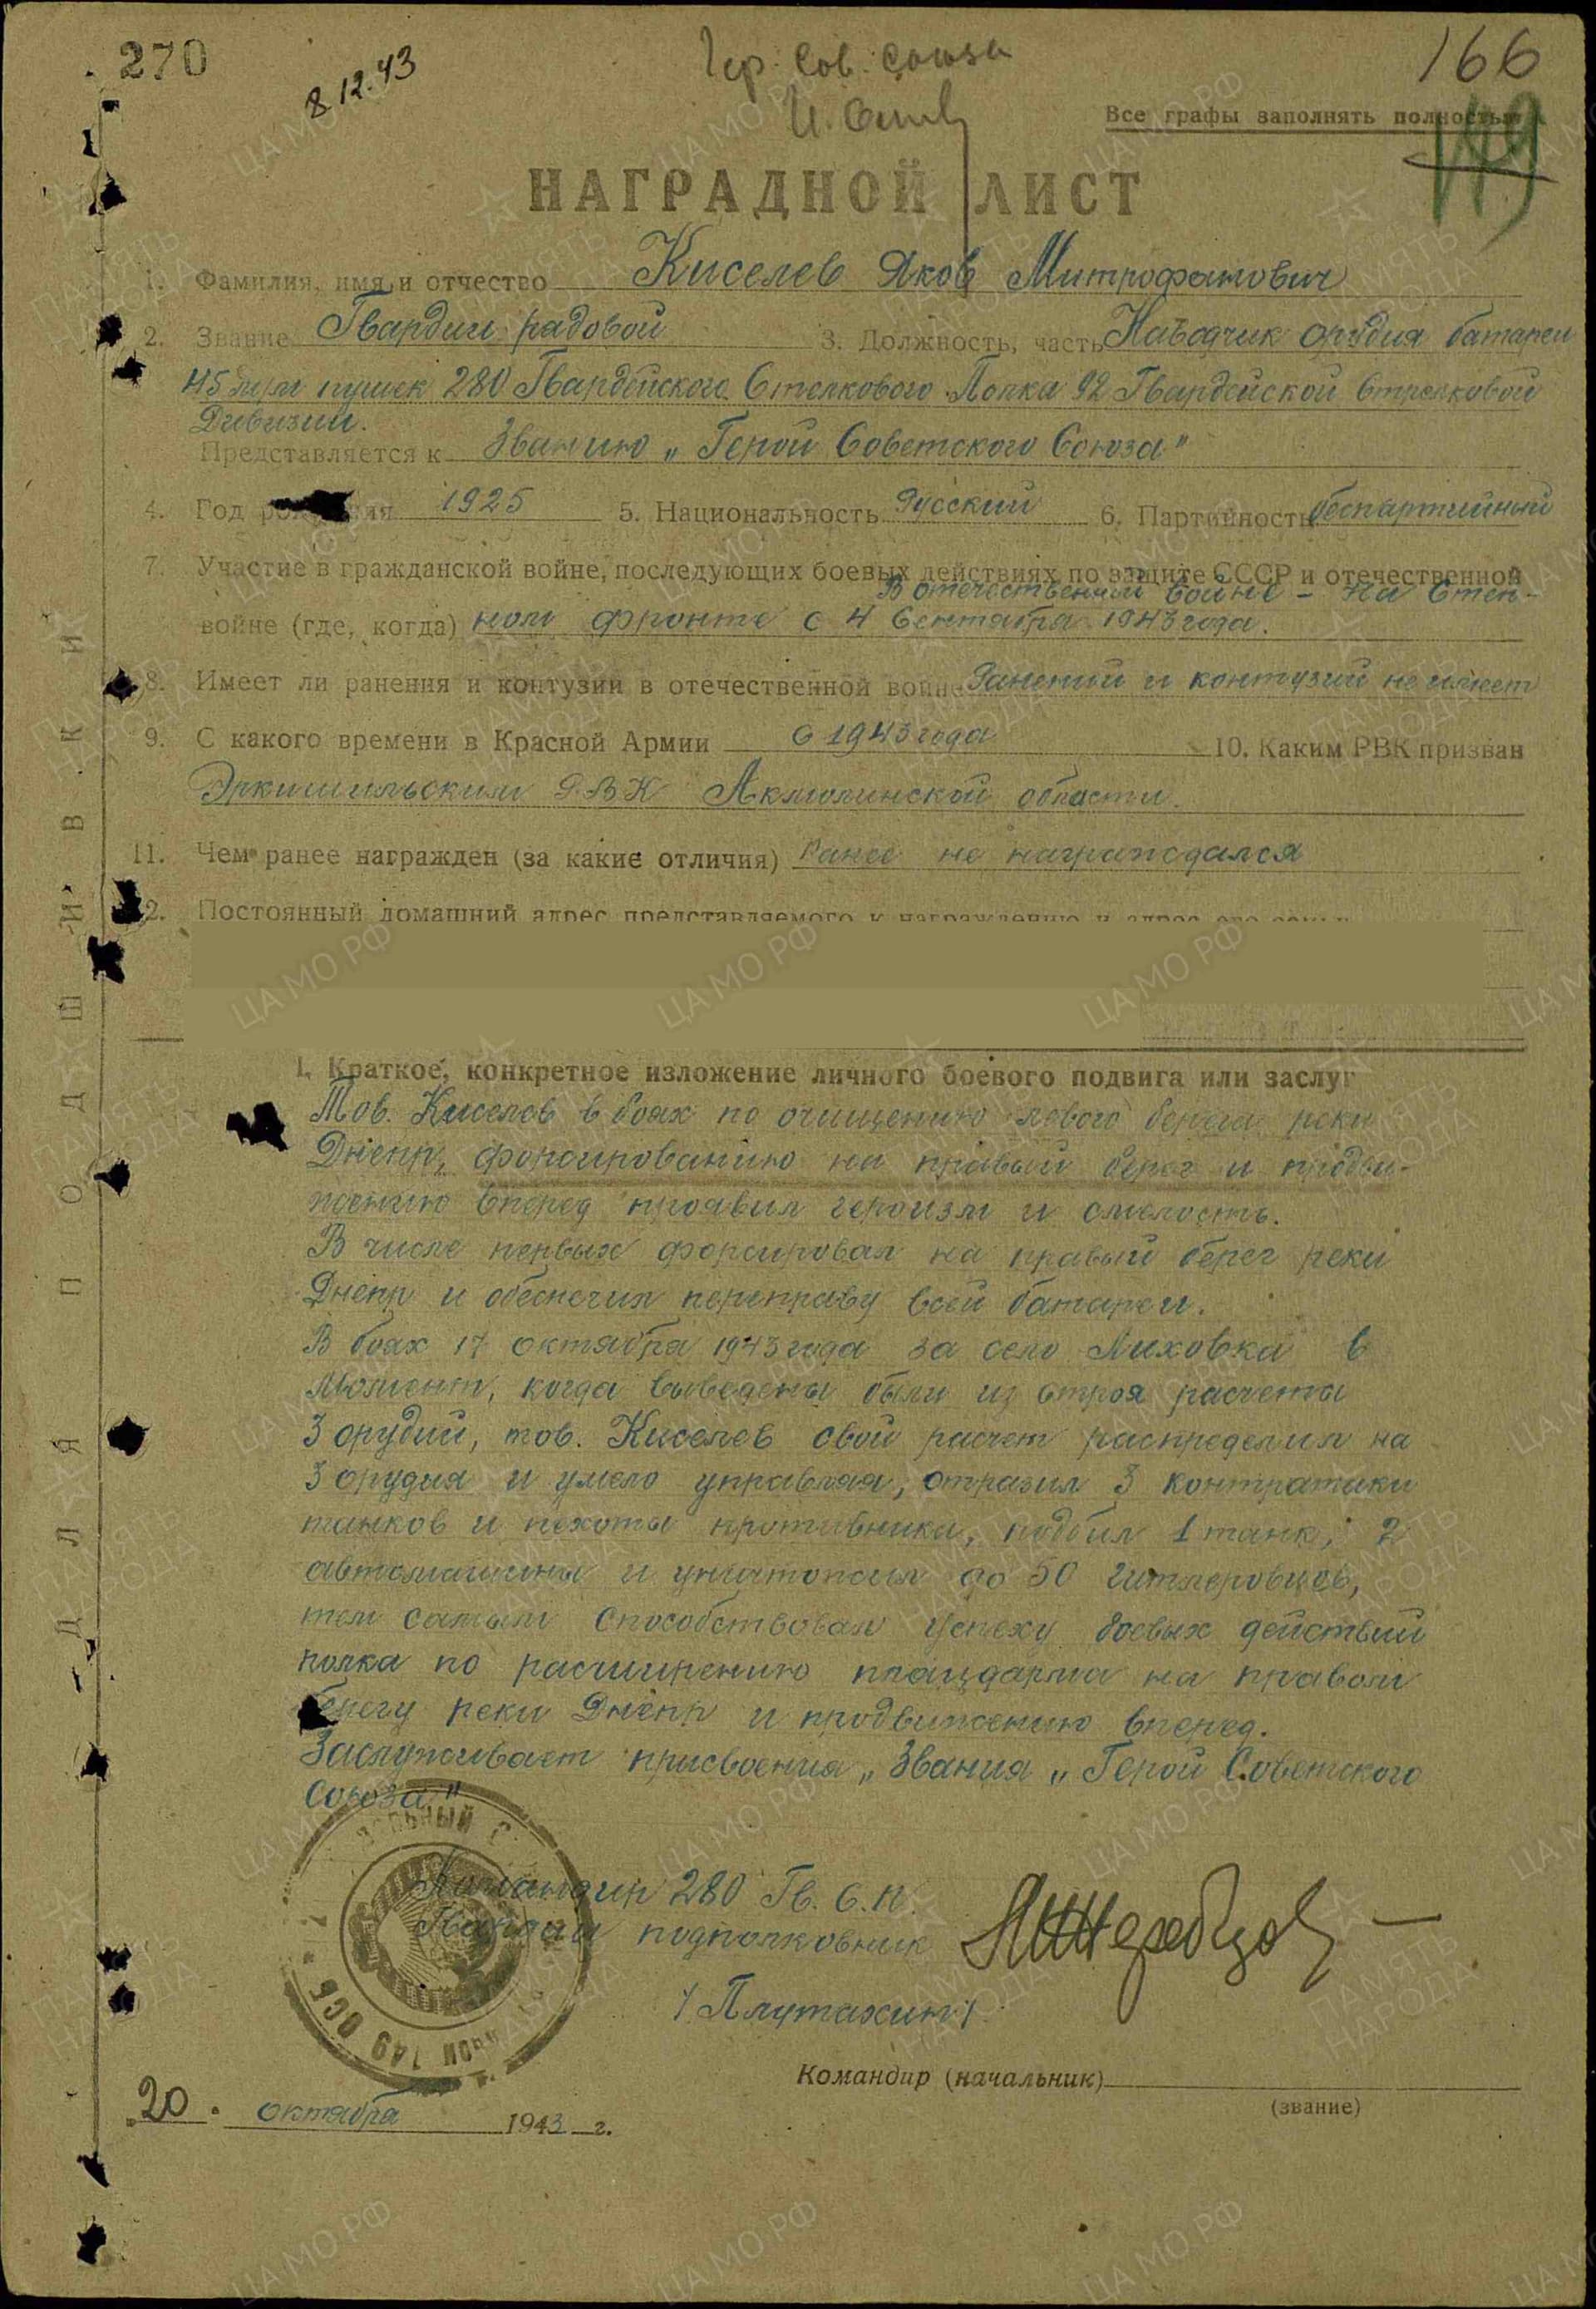 270
8.12.43
Гер. Сов. Союза
166
149
Все графы заполнять полностью
НАГРАДНОЙ ЛИСТ
1. Фамилия, имя и отчество Киселев Яков Митрофанович
2. Звание Гвардии рядовой 3. Должность, часть Наводчик орудия батареи
45 м/м пушек 280 Гвардейского Стрелкового Полка 92 Гвардейской Стрелковой
Дивизии.
Представляется к Званию „Герой Советского Союза"
4. Год рождения 1925 5. Национальность Русский 6. Партийность беспартийный
7. Участие в гражданской войне, последующих боевых действиях по защите СССР и отечественной
В отечественной войне - на Степ-
войне (где, когда) ном фронте с 4 Сентября 1943 года.
8. Имеет ли ранения и контузии в отечественной войне Ранений и контузий не имеет
9. С какого времени в Красной Армии С 1943 года 10. Каким РВК призван
РВК Акмолинской области.
11. Чем ранее награжден (за какие отличия) Ранее не награждался
12. Постоянный домашний адрес представляемого к награждению и адрес его семьи
1. Краткое, конкретное изложение личного боевого подвига или заслуг
Тов. Киселев в боях по очищению левого берега реки
Днепр, форсированию на правый берег и продви-
жению вперед проявил героизм и смелость.
В числе первых форсировал на правый берег реки
Днепр и обеспечил переправу всей батареи.
В боях 17 октября 1943 года за село Лиховка в
момент, когда выведены были из строя расчеты
3 орудий, тов. Киселев свой расчет распределил на
3 орудия и умело управляя, отразил 3 контратаки
танков и пехоты противника, подбил 1 танк, 2
автомашины и уничтожил до 50 гитлеровцев,
тем самым способствовал успеху боевых действий
полка по расширению плацдарма на правом
берегу реки Днепр и продвижению вперед.
Заслуживает присвоения „Звания „Герой Советского
Союза"
Командир 280 Гв. С.П.
Гвардии подполковник
/Плутахин/
Командир (начальник)
(звание)
20. октября 1943 г.
ДЛЯ ПОДШИВКИ
ЦА МО РФ
ПАМЯТЬ НАРОДА